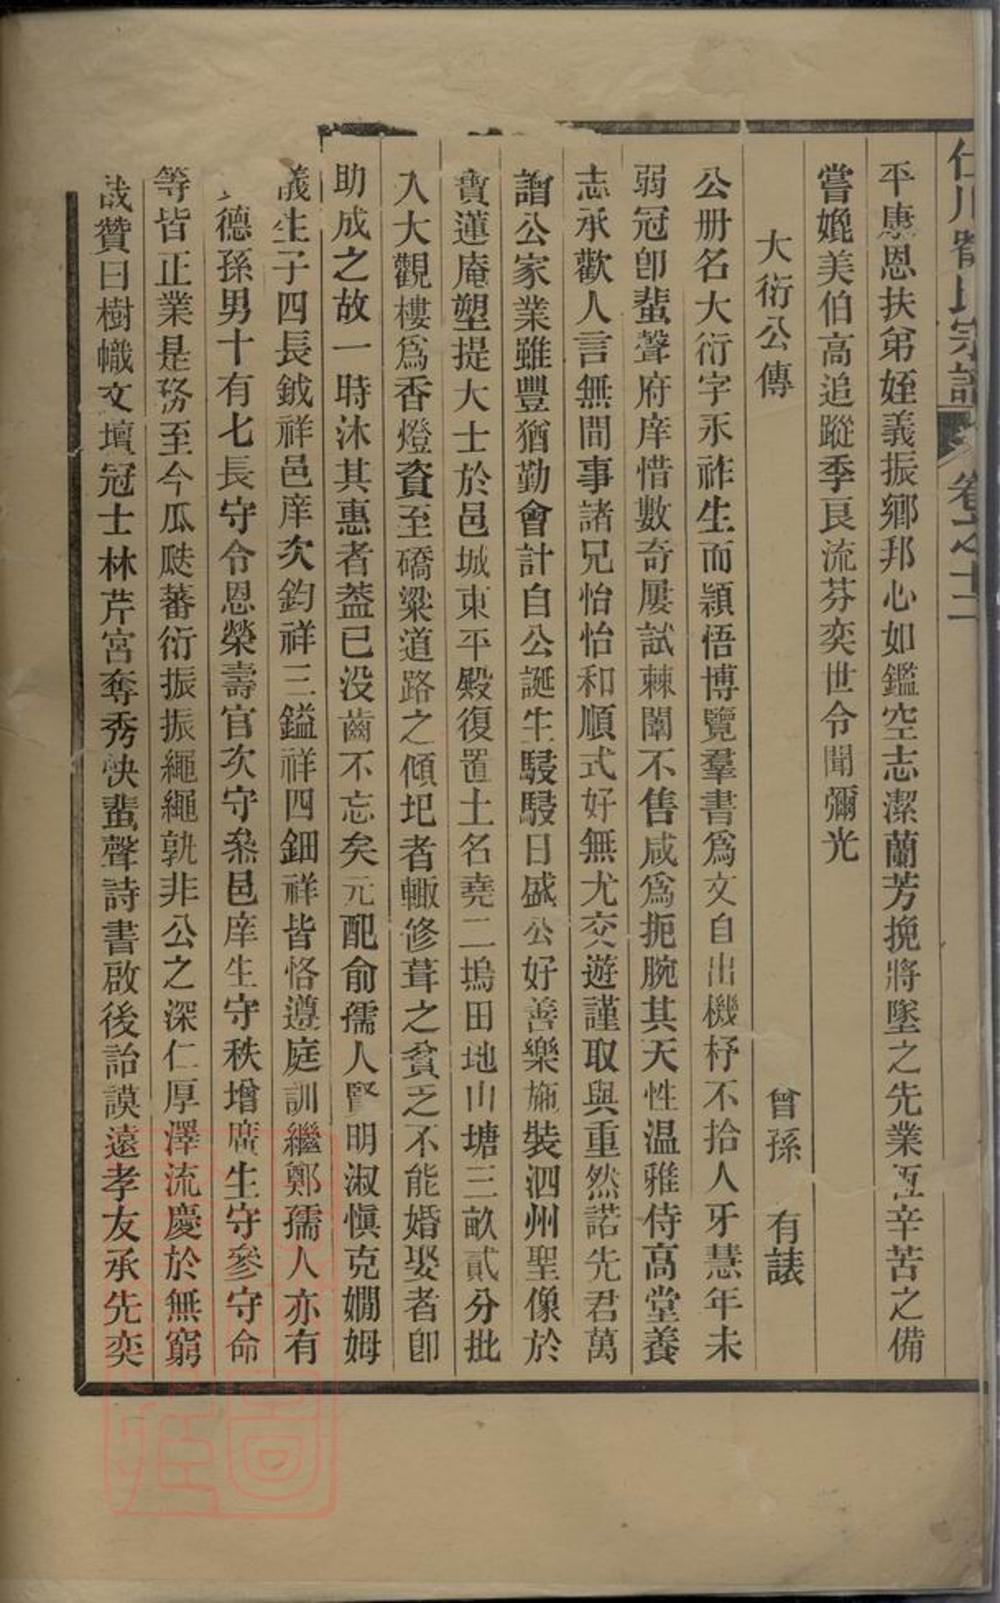 仕川 氏宗譜 卷之十二
平惠恩扶弟姪義振鄉邦心如鑑空志潔蘭芳挽將墜之先業亙辛苦之備
嘗娩美伯高追蹤季良流芬奕世令聞彌光
大衍公傳 曾孫 有諘
公册名大衍字永祚生而穎悟博覽羣書爲文自出機杼不拾人牙慧年未
弱冠卽蜚聲府庠惜數奇屢試棘闈不售咸爲扼腕其天性温雅侍高堂養
志承歡人言無間事諸兄怡怡和順式好無尤交遊謹取與重然諾先君萬
謂公家業雖豐猶勤會計自公誕生駸駸日盛公好善樂施裝泗州聖像於
寶蓮庵塑提大士於邑城東平殿復置土名堯二塢田地山塘三畝貳分批
入大觀樓爲香燈資至礄梁道路之傾圯者輙修葺之貧乏不能婚娶者卽
助成之故一時沐其惠者葢已没齒不忘矣元配俞孺人賢明淑愼克嫺姆
議生子四長鉞祥邑庠次鈞祥三鎰祥四鈿祥皆恪遵庭訓繼鄭孺人亦有
德孫男十有七長守令恩榮壽官次守烝邑庠生守秩增廣生守參守命
等皆正業是務至今瓜瓞蕃衍振振繩繩孰非公之深仁厚澤流慶於無窮
哉贊曰樹幟文壇冠士林芹宮奪秀快蜚聲詩書啟後詒謨遠孝友承先奕